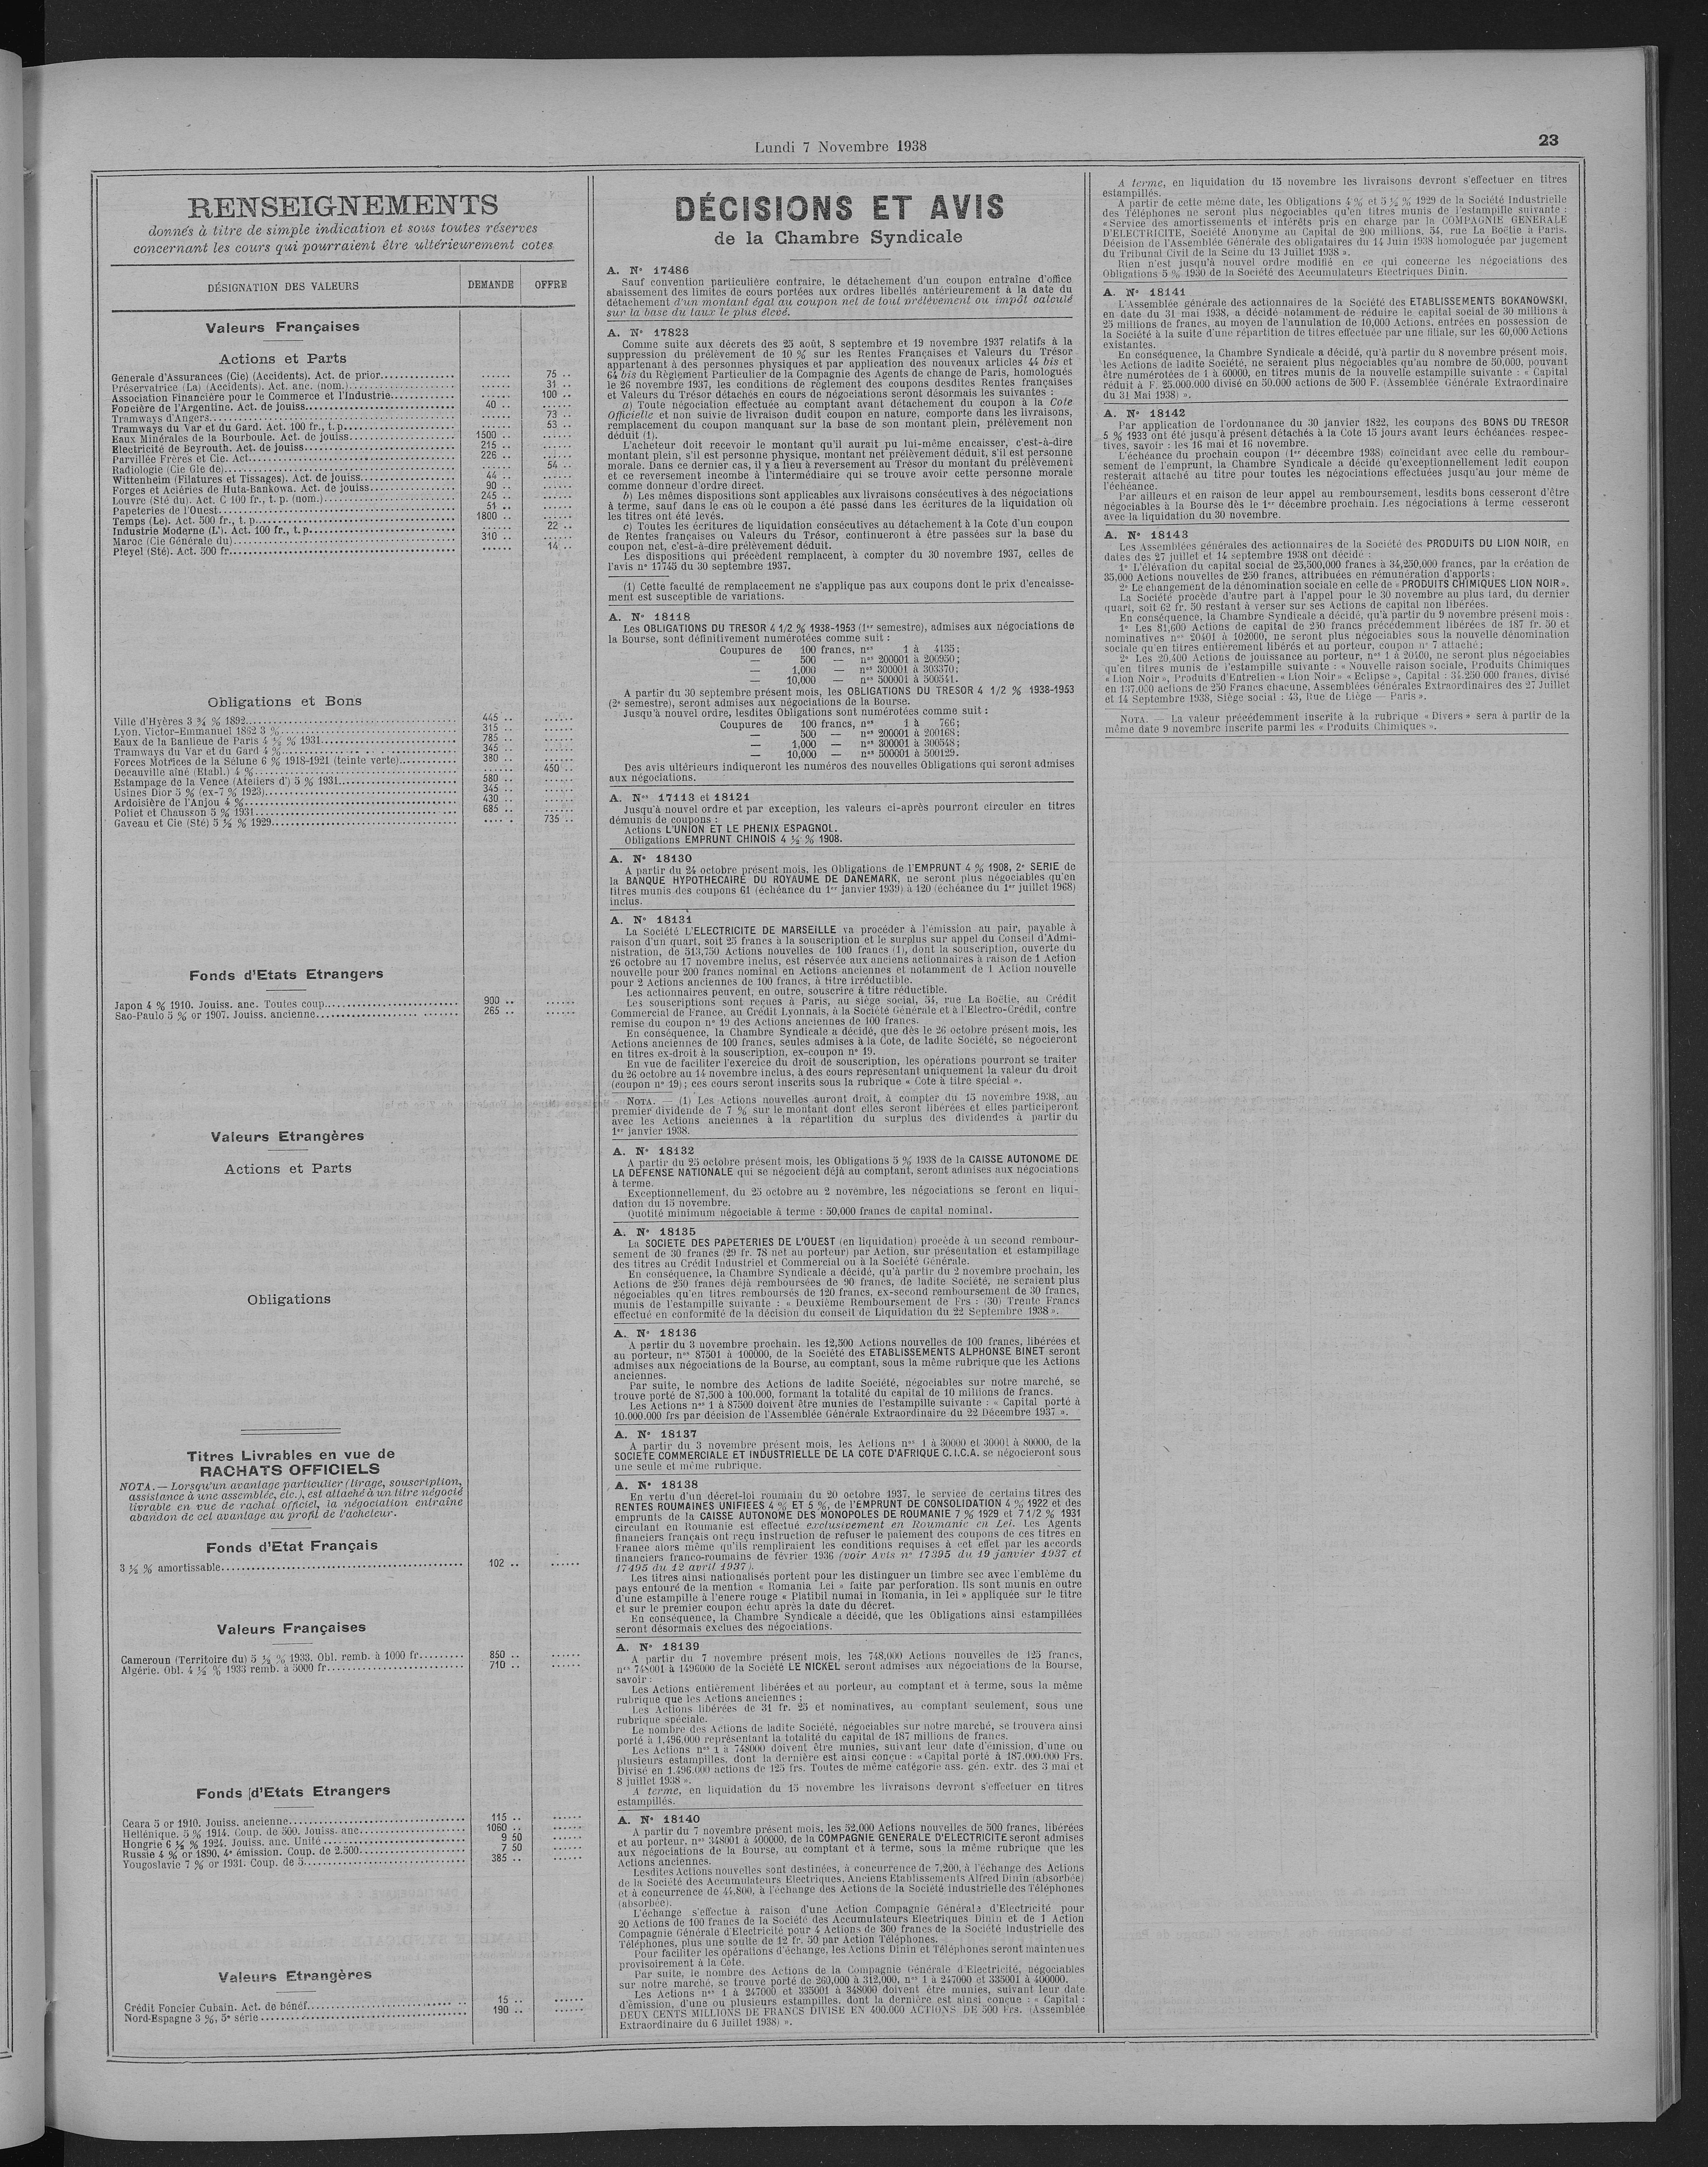 Lundi 7 Novembre 1938
23
RENSEIGNEMENTS
donnés à titre de simple indication et sous toutes réserves
concernant les cours qui pourraient être ultérieurement cotes
DÉSIGNATION DES VALEURS DEMANDE OFFRE
Valeurs Françaises
Actions et Parts
Generale d'Assurances (Cie) (Accidents). Act. de prior. ...... 75 ..
Préservatrice (La) (Accidents). Act. anc. (nom.) ...... 31 ..
Association Financière pour le Commerce et l'Industrie ...... 100 ..
Foncière de l'Argentine. Act. de jouiss. 40 .. ......
Tramways d'Angers ...... 73 ..
Tramways du Var et du Gard. Act. 100 fr., t. p. ...... 53 ..
Eaux Minérales de la Bourboule. Act. de jouiss. 1500 .. ......
Electricité de Beyrouth. Act. de jouiss. 215 .. ......
Parvillée Frères et Cie. Act. 226 .. ......
Radiologie (Cie Gle de) ...... 54 ..
Wittenheim (Filatures et Tissages). Act. de jouiss. 44 .. ......
Forges et Aciéries de Huta-Bankowa. Act. de jouiss. 90 .. ......
Louvre (Sté du). Act. C 100 fr., t. p. (nom.) 245 .. ......
Papeteries de l'Ouest 51 .. ......
Temps (Le). Act. 500 fr., t. p. 1800 .. ......
Industrie Moderne (L'). Act. 100 fr., t. p. ...... 22 ..
Maroc (Cie Générale du) 310 .. ......
Pleyel (Sté). Act. 500 fr. ...... 14 ..
Obligations et Bons
Ville d'Hyères 3 ¾ % 1892 445 .. ......
Lyon. Victor-Emmanuel 1862 3 % 315 .. ......
Eaux de la Banlieue de Paris 4 ½ % 1931 785 .. ......
Tramways du Var et du Gard 4 % 345 .. ......
Forces Motrices de la Sélune 6 % 1918-1921 (teinte verte) 380 .. ......
Decauville aîné (Etabl.) 4 % ...... 450 ..
Estampage de la Vence (Ateliers d') 5 % 1931 580 .. ......
Usines Dior 5 % (ex-7 % 1923) 345 .. ......
Ardoisière de l'Anjou 4 % 430 .. ......
Poliet et Chausson 5 % 1931 685 .. ......
Gaveau et Cie (Sté) 5 ½ % 1929 ...... 735 ..
Fonds d'Etats Etrangers
Japon 4 % 1910. Jouiss. anc. Toutes coup. 900 .. ......
Sao-Paulo 5 % or 1907. Jouiss. ancienne 265 .. ......
Valeurs Etrangères
Actions et Parts
Obligations
Titres Livrables en vue de
RACHATS OFFICIELS
NOTA. — Lorsqu'un avantage particulier (tirage, souscription,
assistance à une assemblée, etc.), est attaché à un titre négocié
livrable en vue de rachat officiel, la négociation entraîne
abandon de cet avantage au profit de l'acheteur.
Fonds d'Etat Français
3 ½ % amortissable 102 .. ......
Valeurs Françaises
Cameroun (Territoire du) 5 ½ % 1933. Obl. remb. à 1000 fr. 850 .. ......
Algérie. Obl. 4 ½ % 1933 remb. à 5000 fr. 710 .. ......
Fonds d'Etats Etrangers
Ceara 5 or 1910. Jouiss. ancienne 115 .. ......
Hellénique. 5 % 1914. Coup. de 500. Jouiss. anc. 1060 .. ......
Hongrie 6 ½ % 1924. Jouiss. anc. Unité 9 50 ......
Russie 4 % or 1890. 4e émission. Coup. de 2.500 7 50 ......
Yougoslavie 7 % or 1931. Coup. de 5 385 .. ......
Valeurs Etrangères
Crédit Foncier Cubain. Act. de bénéf. 15 .. ......
Nord-Espagne 3 %, 5e série 190 .. ......
DÉCISIONS ET AVIS
de la Chambre Syndicale
A. N° 17486
Sauf convention particulière contraire, le détachement d'un coupon entraîne d'office
abaissement des limites de cours portées aux ordres libellés antérieurement à la date du
détachement d'un montant égal au coupon net de tout prélèvement ou impôt calculé
sur la base du taux le plus élevé.
A. N° 17823
Comme suite aux décrets des 25 août, 8 septembre et 19 novembre 1937 relatifs à la
suppression du prélèvement de 10 % sur les Rentes Françaises et Valeurs du Trésor
appartenant à des personnes physiques et par application des nouveaux articles 44 bis et
64 bis du Règlement Particulier de la Compagnie des Agents de change de Paris, homologués
le 26 novembre 1937, les conditions de règlement des coupons desdites Rentes françaises
et Valeurs du Trésor détachés en cours de négociations seront désormais les suivantes :
a) Toute négociation effectuée au comptant avant détachement du coupon à la Cote
Officielle et non suivie de livraison dudit coupon en nature, comporte dans les livraisons,
remplacement du coupon manquant sur la base de son montant plein, prélèvement non
déduit (1).
L'acheteur doit recevoir le montant qu'il aurait pu lui-même encaisser, c'est-à-dire
montant plein, s'il est personne physique, montant net prélèvement déduit, s'il est personne
morale. Dans ce dernier cas, il y a lieu à reversement au Trésor du montant du prélèvement
et ce reversement incombe à l'intermédiaire qui se trouve avoir cette personne morale
comme donneur d'ordre direct.
b) Les mêmes dispositions sont applicables aux livraisons consécutives à des négociations
à terme, sauf dans le cas où le coupon a été passé dans les écritures de la liquidation où
les titres ont été levés.
c) Toutes les écritures de liquidation consécutives au détachement à la Cote d'un coupon
de Rentes françaises ou Valeurs du Trésor, continueront à être passées sur la base du
coupon net, c'est-à-dire prélèvement déduit.
Les dispositions qui précèdent remplacent, à compter du 30 novembre 1937, celles de
l'avis n° 17745 du 30 septembre 1937.
(1) Cette faculté de remplacement ne s'applique pas aux coupons dont le prix d'encaisse-
ment est susceptible de variations.
A. N° 18118
Les OBLIGATIONS DU TRESOR 4 1/2 % 1938-1953 (1er semestre), admises aux négociations de
la Bourse, sont définitivement numérotées comme suit :
Coupures de 100 francs, nos 1 à 4135;
— 500 — nos 200001 à 200950;
— 1,000 — nos 300001 à 303370;
— 10,000 — nos 500001 à 500541.
A partir du 30 septembre présent mois, les OBLIGATIONS DU TRESOR 4 1/2 % 1938-1953
(2e semestre), seront admises aux négociations de la Bourse.
Jusqu'à nouvel ordre, lesdites Obligations sont numérotées comme suit :
Coupures de 100 francs, nos 1 à 766;
— 500 — nos 200001 à 200168;
— 1,000 — nos 300001 à 300548;
— 10,000 — nos 500001 à 500129.
Des avis ultérieurs indiqueront les numéros des nouvelles Obligations qui seront admises
aux négociations.
A. Nos 17113 et 18121
Jusqu'à nouvel ordre et par exception, les valeurs ci-après pourront circuler en titres
démunis de coupons :
Actions L'UNION ET LE PHENIX ESPAGNOL.
Obligations EMPRUNT CHINOIS 4 ½ % 1908.
A. N° 18130
A partir du 24 octobre présent mois, les Obligations de l'EMPRUNT 4 % 1908, 2e SERIE de
la BANQUE HYPOTHECAIRE DU ROYAUME DE DANEMARK, ne seront plus négociables qu'en
titres munis des coupons 61 (échéance du 1er janvier 1939) à 120 (échéance du 1er juillet 1968)
inclus.
A. N° 18131
La Société L'ELECTRICITE DE MARSEILLE va procéder à l'émission au pair, payable à
raison d'un quart, soit 25 francs à la souscription et le surplus sur appel du Conseil d'Admi-
nistration, de 513,750 Actions nouvelles de 100 francs (1), dont la souscription, ouverte du
26 octobre au 17 novembre inclus, est réservée aux anciens actionnaires à raison de 1 Action
nouvelle pour 200 francs nominal en Actions anciennes et notamment de 1 Action nouvelle
pour 2 Actions anciennes de 100 francs, à titre irréductible.
Les actionnaires peuvent, en outre, souscrire à titre réductible.
Les souscriptions sont reçues à Paris, au siège social, 54, rue La Boëtie, au Crédit
Commercial de France, au Crédit Lyonnais, à la Société Générale et à l'Electro-Crédit, contre
remise du coupon n° 19 des Actions anciennes de 100 francs.
En conséquence, la Chambre Syndicale a décidé, que dès le 26 octobre présent mois, les
Actions anciennes de 100 francs, seules admises à la Cote, de ladite Société, se négocieront
en titres ex-droit à la souscription, ex-coupon n° 19.
En vue de faciliter l'exercice du droit de souscription, les opérations pourront se traiter
du 26 octobre au 14 novembre inclus, à des cours représentant uniquement la valeur du droit
(coupon n° 19); ces cours seront inscrits sous la rubrique « Cote à titre spécial ».
NOTA. — (1) Les Actions nouvelles auront droit, à compter du 15 novembre 1938, au
premier dividende de 7 % sur le montant dont elles seront libérées et elles participeront
avec les Actions anciennes à la répartition du surplus des dividendes à partir du
1er janvier 1938.
A. N° 18132
A partir du 25 octobre présent mois, les Obligations 5 % 1938 de la CAISSE AUTONOME DE
LA DEFENSE NATIONALE qui se négocient déjà au comptant, seront admises aux négociations
à terme.
Exceptionnellement, du 25 octobre au 2 novembre, les négociations se feront en liqui-
dation du 15 novembre.
Quotité minimum négociable à terme : 50,000 francs de capital nominal.
A. N° 18135
La SOCIETE DES PAPETERIES DE L'OUEST (en liquidation) procède à un second rembour-
sement de 30 francs (29 fr. 78 net au porteur) par Action, sur présentation et estampillage
des titres au Crédit Industriel et Commercial ou à la Société Générale.
En conséquence, la Chambre Syndicale a décidé, qu'à partir du 2 novembre prochain, les
Actions de 250 francs déjà remboursées de 90 francs, de ladite Société, ne seraient plus
négociables qu'en titres remboursés de 120 francs, ex-second remboursement de 30 francs,
munis de l'estampille suivante : « Deuxième Remboursement de Frs : (30) Trente Francs
effectué en conformité de la décision du conseil de Liquidation du 22 Septembre 1938 ».
A. N° 18136
A partir du 3 novembre prochain, les 12,500 Actions nouvelles de 100 francs, libérées et
au porteur, nos 87501 à 100000, de la Société des ETABLISSEMENTS ALPHONSE BINET seront
admises aux négociations de la Bourse, au comptant, sous la même rubrique que les Actions
anciennes.
Par suite, le nombre des Actions de ladite Société, négociables sur notre marché, se
trouve porté de 87.500 à 100.000, formant la totalité du capital de 10 millions de francs.
Les Actions nos 1 à 87500 doivent être munies de l'estampille suivante : « Capital porté à
10.000.000 frs par décision de l'Assemblée Générale Extraordinaire du 22 Décembre 1937 ».
A. N° 18137
A partir du 3 novembre présent mois, les Actions nos 1 à 30000 et 30001 à 80000, de la
SOCIETE COMMERCIALE ET INDUSTRIELLE DE LA COTE D'AFRIQUE C.I.C.A. se négocieront sous
une seule et même rubrique.
A. N° 18138
En vertu d'un décret-loi roumain du 20 octobre 1937, le service de certains titres des
RENTES ROUMAINES UNIFIEES 4 % ET 5 %, de l'EMPRUNT DE CONSOLIDATION 4 % 1922 et des
emprunts de la CAISSE AUTONOME DES MONOPOLES DE ROUMANIE 7 % 1929 et 7 1/2 % 1931
circulant en Roumanie est effectué exclusivement en Roumanie en Lei. Les Agents
financiers français ont reçu instruction de refuser le paiement des coupons de ces titres en
France alors même qu'ils rempliraient les conditions requises à cet effet par les accords
financiers franco-roumains de février 1936 (voir Avis n° 17395 du 19 janvier 1937 et
17495 du 12 avril 1937).
Les titres ainsi nationalisés portent pour les distinguer un timbre sec avec l'emblème du
pays entouré de la mention « Romania Lei » faite par perforation. Ils sont munis en outre
d'une estampille à l'encre rouge « Platibil numai in Romania, in lei » appliquée sur le titre
et sur le premier coupon échu après la date du décret.
En conséquence, la Chambre Syndicale a décidé, que les Obligations ainsi estampillées
seront désormais exclues des négociations.
A. N° 18139
A partir du 7 novembre présent mois, les 748,000 Actions nouvelles de 125 francs,
nos 748001 à 1496000 de la Société LE NICKEL seront admises aux négociations de la Bourse,
savoir :
Les Actions entièrement libérées et au porteur, au comptant et à terme, sous la même
rubrique que les Actions anciennes ;
Les Actions libérées de 31 fr. 25 et nominatives, au comptant seulement, sous une
rubrique spéciale.
Le nombre des Actions de ladite Société, négociables sur notre marché, se trouvera ainsi
porté à 1.496.000 représentant la totalité du capital de 187 millions de francs.
Les Actions nos 1 à 748000 doivent être munies, suivant leur date d'émission, d'une ou
plusieurs estampilles, dont la dernière est ainsi conçue : « Capital porté à 187.000.000 Frs.
Divisé en 1.496.000 actions de 125 frs. Toutes de même catégorie ass. gén. extr. des 3 mai et
8 juillet 1938 ».
A terme, en liquidation du 15 novembre les livraisons devront s'effectuer en titres
estampillés.
A. N° 18140
A partir du 7 novembre présent mois, les 52,000 Actions nouvelles de 500 francs, libérées
et au porteur, nos 348001 à 400000, de la COMPAGNIE GENERALE D'ELECTRICITE seront admises
aux négociations de la Bourse, au comptant et à terme, sous la même rubrique que les
Actions anciennes.
Lesdites Actions nouvelles sont destinées, à concurrence de 7,200, à l'échange des Actions
de la Société des Accumulateurs Electriques, Anciens Etablissements Alfred Dinin (absorbée)
et à concurrence de 44,800, à l'échange des Actions de la Société Industrielle des Téléphones
(absorbée).
L'échange s'effectue à raison d'une Action Compagnie Générale d'Electricité pour
20 Actions de 100 francs de la Société des Accumulateurs Electriques Dinin et de 1 Action
Compagnie Générale d'Electricité pour 4 Actions de 300 francs de la Société Industrielle des
Téléphones, plus une soulte de 12 fr. 50 par Action Téléphones.
Pour faciliter les opérations d'échange, les Actions Dinin et Téléphones seront maintenues
provisoirement à la Cote.
Par suite, le nombre des Actions de la Compagnie Générale d'Electricité, négociables
sur notre marché, se trouve porté de 260,000 à 312,000, nos 1 à 247000 et 335001 à 400000.
Les Actions nos 1 à 247000 et 335001 à 348000 doivent être munies, suivant leur date
d'émission, d'une ou plusieurs estampilles, dont la dernière est ainsi conçue : « Capital :
DEUX CENTS MILLIONS DE FRANCS DIVISE EN 400.000 ACTIONS DE 500 Frs. (Assemblée
Extraordinaire du 6 Juillet 1938) ».
A terme, en liquidation du 15 novembre les livraisons devront s'effectuer en titres
estampillés.
A partir de cette même date, les Obligations 4 % et 5 ½ % 1929 de la Société Industrielle
des Téléphones ne seront plus négociables qu'en titres munis de l'estampille suivante :
« Service des amortissements et intérêts pris en charge par la COMPAGNIE GENERALE
D'ELECTRICITE, Société Anonyme au Capital de 200 millions, 54, rue La Boëtie à Paris.
Décision de l'Assemblée Générale des obligataires du 14 Juin 1938 homologuée par jugement
du Tribunal Civil de la Seine du 13 Juillet 1938 ».
Rien n'est jusqu'à nouvel ordre modifié en ce qui concerne les négociations des
Obligations 5 % 1930 de la Société des Accumulateurs Electriques Dinin.
A. N° 18141
L'Assemblée générale des actionnaires de la Société des ETABLISSEMENTS BOKANOWSKI,
en date du 31 mai 1938, a décidé notamment de réduire le capital social de 30 millions à
25 millions de francs, au moyen de l'annulation de 10,000 Actions, entrées en possession de
la Société à la suite d'une répartition de titres effectuée par une filiale, sur les 60,000 Actions
existantes.
En conséquence, la Chambre Syndicale a décidé, qu'à partir du 8 novembre présent mois,
les Actions de ladite Société, ne seraient plus négociables qu'au nombre de 50,000, pouvant
être numérotées de 1 à 60000, en titres munis de la nouvelle estampille suivante : « Capital
réduit à F. 25.000.000 divisé en 50.000 actions de 500 F. (Assemblée Générale Extraordinaire
du 31 Mai 1938) ».
A. N° 18142
Par application de l'ordonnance du 30 janvier 1822, les coupons des BONS DU TRESOR
5 % 1933 ont été jusqu'à présent détachés à la Cote 15 jours avant leurs échéances respec-
tives, savoir : les 16 mai et 16 novembre.
L'échéance du prochain coupon (1er décembre 1938) coïncidant avec celle du rembour-
sement de l'emprunt, la Chambre Syndicale a décidé qu'exceptionnellement ledit coupon
resterait attaché au titre pour toutes les négociations effectuées jusqu'au jour même de
l'échéance.
Par ailleurs et en raison de leur appel au remboursement, lesdits bons cesseront d'être
négociables à la Bourse dès le 1er décembre prochain. Les négociations à terme cesseront
avec la liquidation du 30 novembre.
A. N° 18143
Les Assemblées générales des actionnaires de la Société des PRODUITS DU LION NOIR, en
dates des 27 juillet et 14 septembre 1938 ont décidé :
1° L'élévation du capital social de 25,500,000 francs à 34,250,000 francs, par la création de
35.000 Actions nouvelles de 250 francs, attribuées en rémunération d'apports;
2° Le changement de la dénomination sociale en celle de « PRODUITS CHIMIQUES LION NOIR ».
La Société procède d'autre part à l'appel pour le 30 novembre au plus tard, du dernier
quart, soit 62 fr. 50 restant à verser sur ses Actions de capital non libérées.
En conséquence, la Chambre Syndicale a décidé, qu'à partir du 9 novembre présent mois :
1° Les 81,600 Actions de capital de 250 francs précédemment libérées de 187 fr. 50 et
nominatives nos 20401 à 102000, ne seront plus négociables sous la nouvelle dénomination
sociale qu'en titres entièrement libérés et au porteur, coupon n° 7 attaché;
2° Les 20,400 Actions de jouissance au porteur, nos 1 à 20400, ne seront plus négociables
qu'en titres munis de l'estampille suivante : « Nouvelle raison sociale, Produits Chimiques
« Lion Noir », Produits d'Entretien « Lion Noir » « Eclipse », Capital : 34.250 000 francs, divisé
en 137.000 actions de 250 Francs chacune, Assemblées Générales Extraordinaires des 27 Juillet
et 14 Septembre 1938, Siège social : 43, Rue de la Liège — Paris ».
NOTA. — La valeur précédemment inscrite à la rubrique « Divers » sera à partir de la
même date 9 novembre inscrite parmi les « Produits Chimiques ».